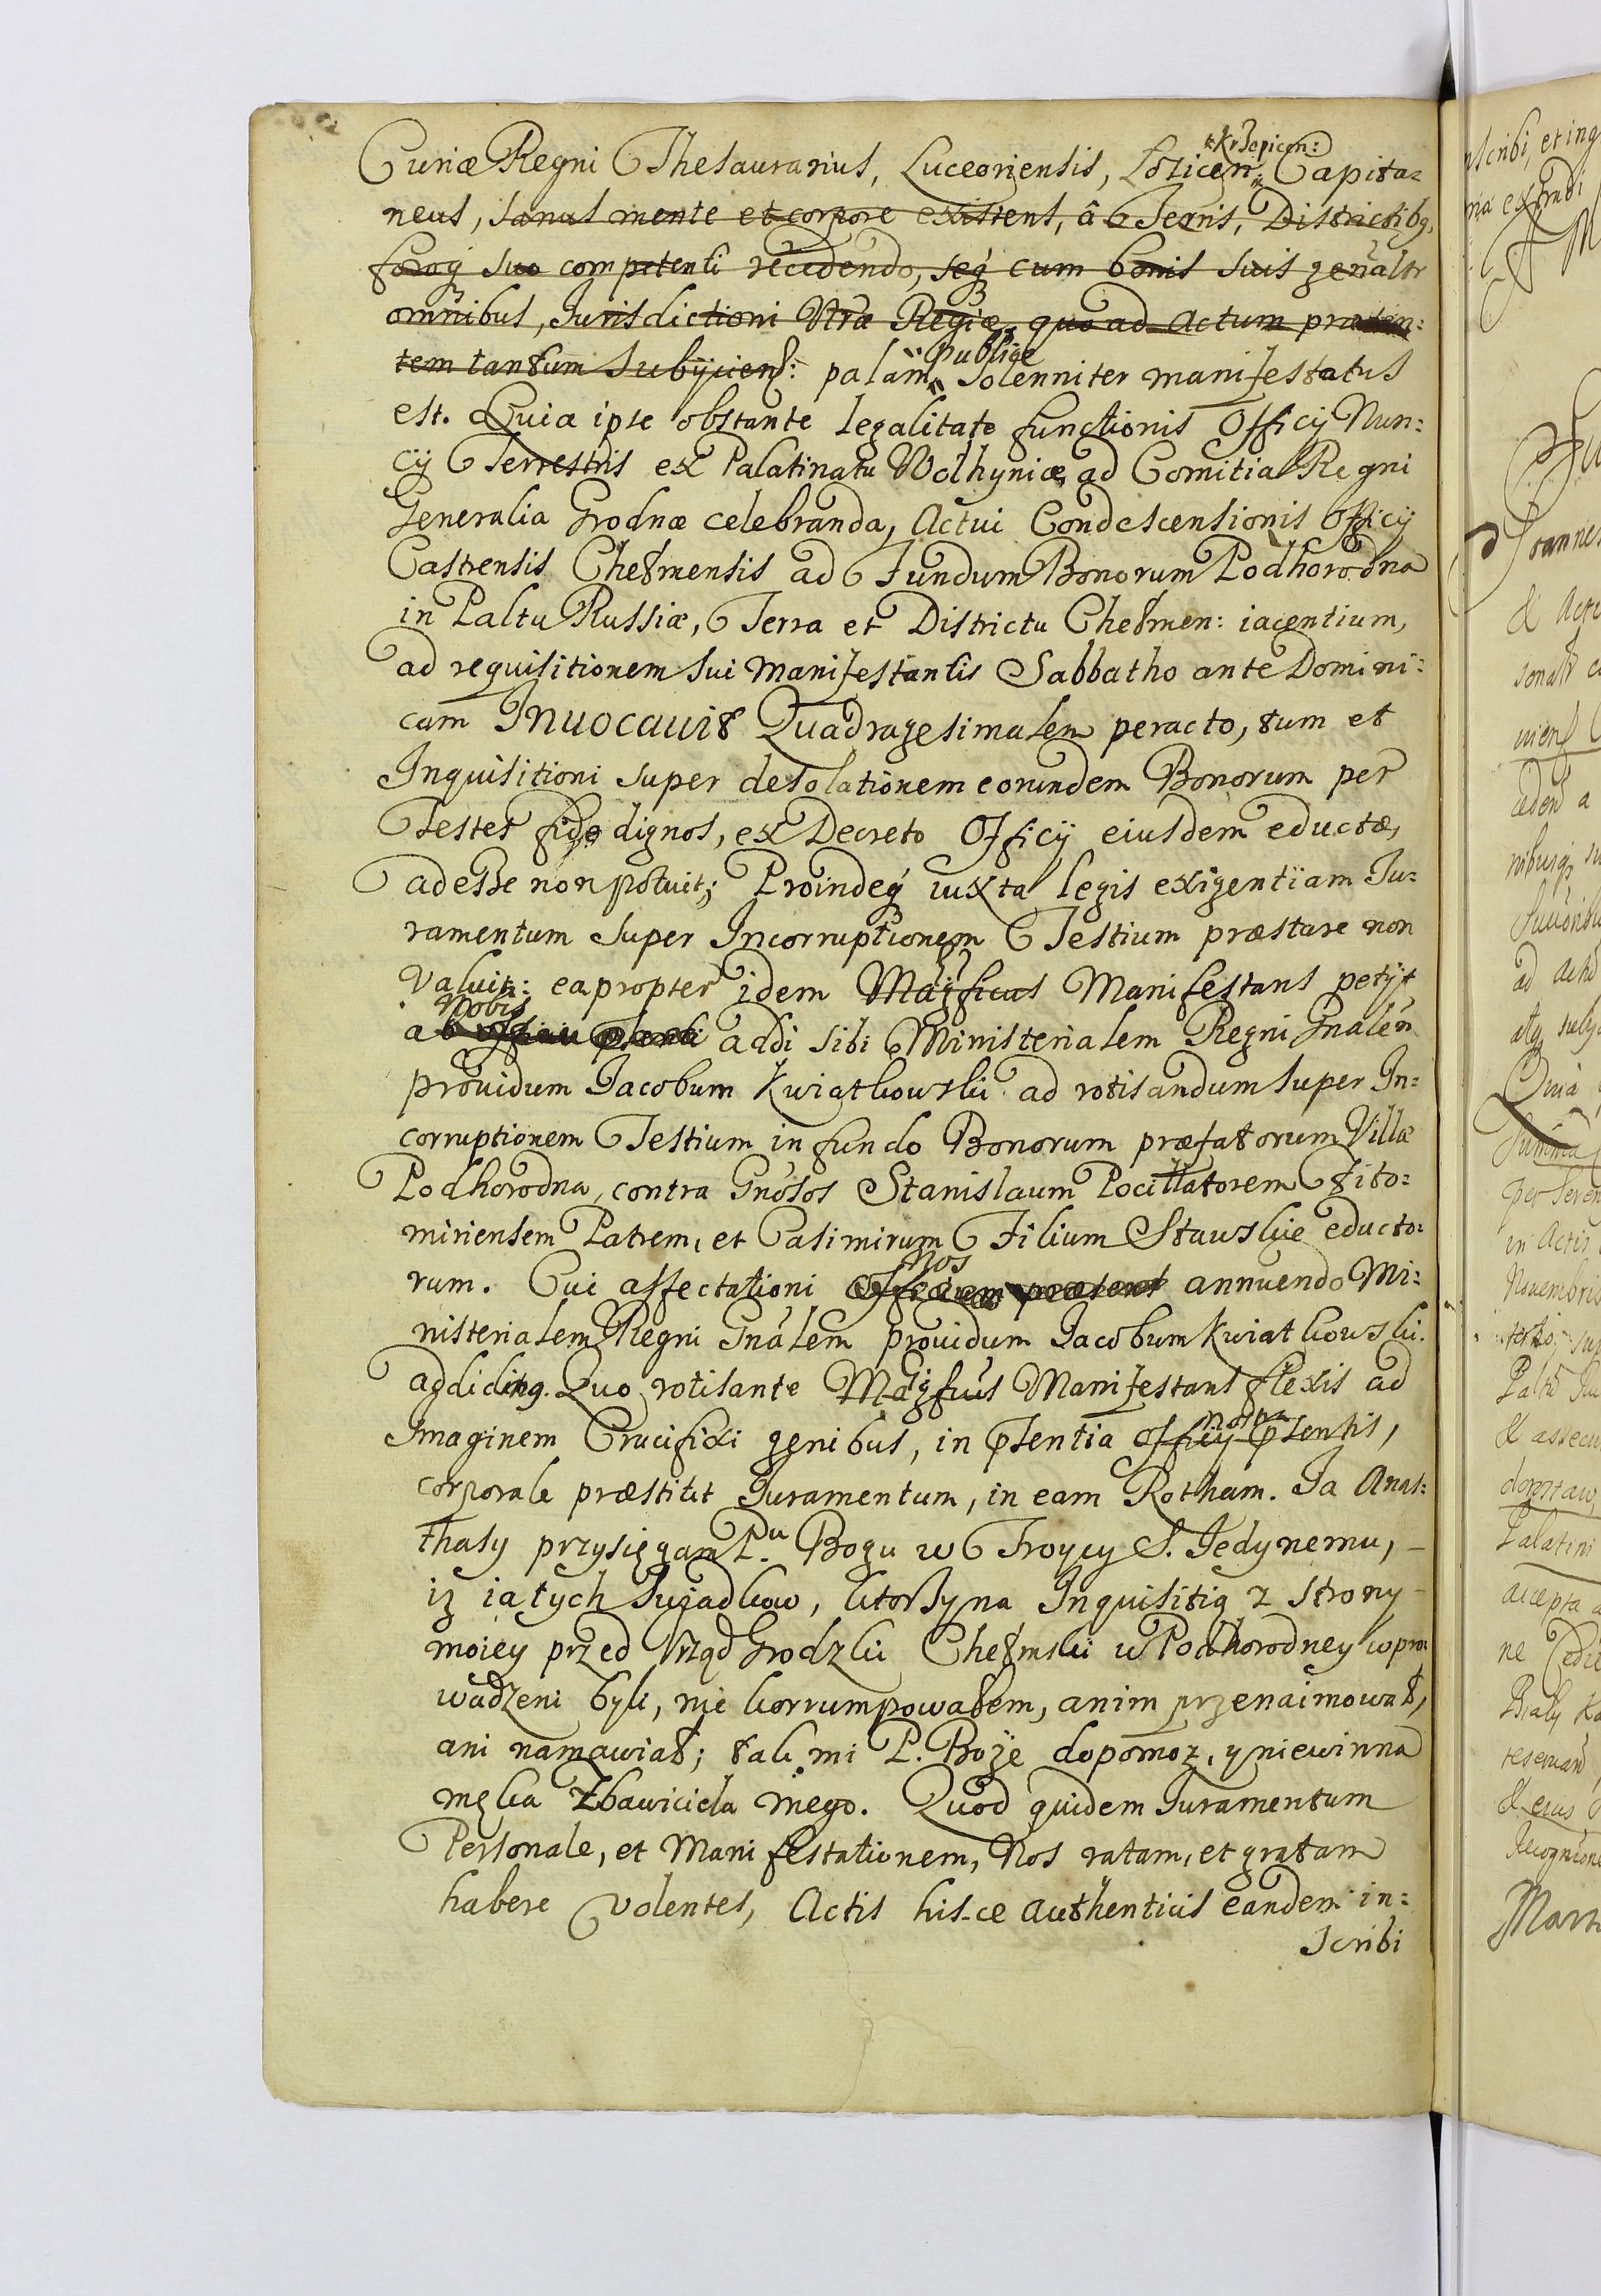 Curiæ Regni Thesaurarius, Luceoriensis, Łosicen: Krzepicen: Capita=
neus, sanus mente et corpore existens, â Terris, Districtibq,
foroq suo competenti recedendo, seq cum bonis suis genãltr
omnibus, Jurisdictioni Nræ Regiæ, quo ad actum præsen:
tem tantum subÿciens: palàm publice solenniter manifestatus
est. Quia ipse obstante legalitate functionis Officÿ Nun:
cÿ Terrestris ex Palatinatu Wolhyniæ, ad Comitia Regni
Generalia Grodnæ celebranda, Actui Condescensionis Officÿ
Castrensis Chełmensis ad Fundum Bonorum Podhorodna
in Paltu Russiæ, Terra et Districtu Chełmen: iacentium,
ad requisitionem sui Manifestantis Sabbatho ante Domini:
cam Inuocauit Quadragesimalem peracto, tum et
Inquisitioni super desolationem eorundem Bonorum per
Testes fide dignos, ex Decreto Officÿ eiusdem eductæ,
adesse non potuit; Proindeq iuxta legis exigentiam Ju:
ramentum super Incorruptionem Testium præstare non
valuit: eapropter idem Mãgficus Manifestans petÿt
a Nobis addi sibi Ministerialem Regni Gnãlem
prouidum Jacobum Kwiatkowski ad rotisandum super In:
corruptionem Testium in fundo Bonorum præfatorum Villæ
Podhorodna, contra Gnõsos Stanislaum Pocillatorem Żito:
miriensem Patrem, et Casimirum Filium Stawskie educto:
rum. Cui affectationi Officium præsens Nos annuendo Mi:
nisterialem Regni Gnãlem prouidum Jacobum Kwiatkowski
addidimq. Quo rotisante Mãgficus Manifestans flexis ad
Imaginem Crucifixi genibus, in pr̃sentia Officÿ pr̃sentis, nostra
corporale præstitit Juramentum, in eam Rotham. Ja Anas:
thasy przysięgam P.u Bogu w Troycy S. Jedynemu,
iz ia tych swiadkow, ktorzy na Inquisitią z strony
moiey przed Vrząd Grodzki Chełmski w Podhorodney wpro
wadzeni byli, nie korrumpowałem, anim przenaimował,
ani namawiał; tak mi P. Boże dopomoz, y niewinna
męka Zbawiciela mego. Quod quidem Juramentum
Personale, et Manifestationem, Nos ratam, et gratam
habere volentes, Actis hisce authenticis eandem in:
scribi